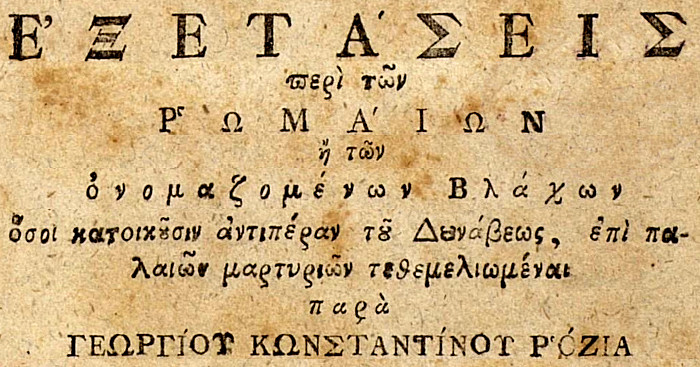 Ἐ̓ΞΕΤΆΣΕΙΣ
ϖερὶ τῶν
Ῥ̔ΩΜΑΊΩΝ
ἢ τῶν
ὀνομαζομένων Βλάχων
ὅσοι κατοικȣ͂σιν ἀντιπέραν τοῦ Δȣνάβεως, ἐπὶ πα-
λαιῶν μαρτυριῶν τεθεμελιωμέναι
παρὰ
ΓΕΩΡΓΊΟΥ ΚΩΝΣΤΑΝΤΊΝΟΥ ῬΌΖΙΑ